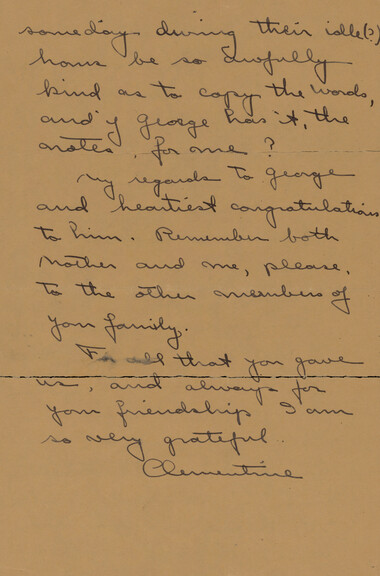 someday during their idle(?)
hours be so awfully
kind as to copy the words,
and if George has it, the
notes, for me?
My regards to George
and heartiest congratulations
to him. Remember both
Mother and me, please,
to the other members of
your family.
For all that you gave
us, and always for
your friendship I am
so very grateful.
Clementine